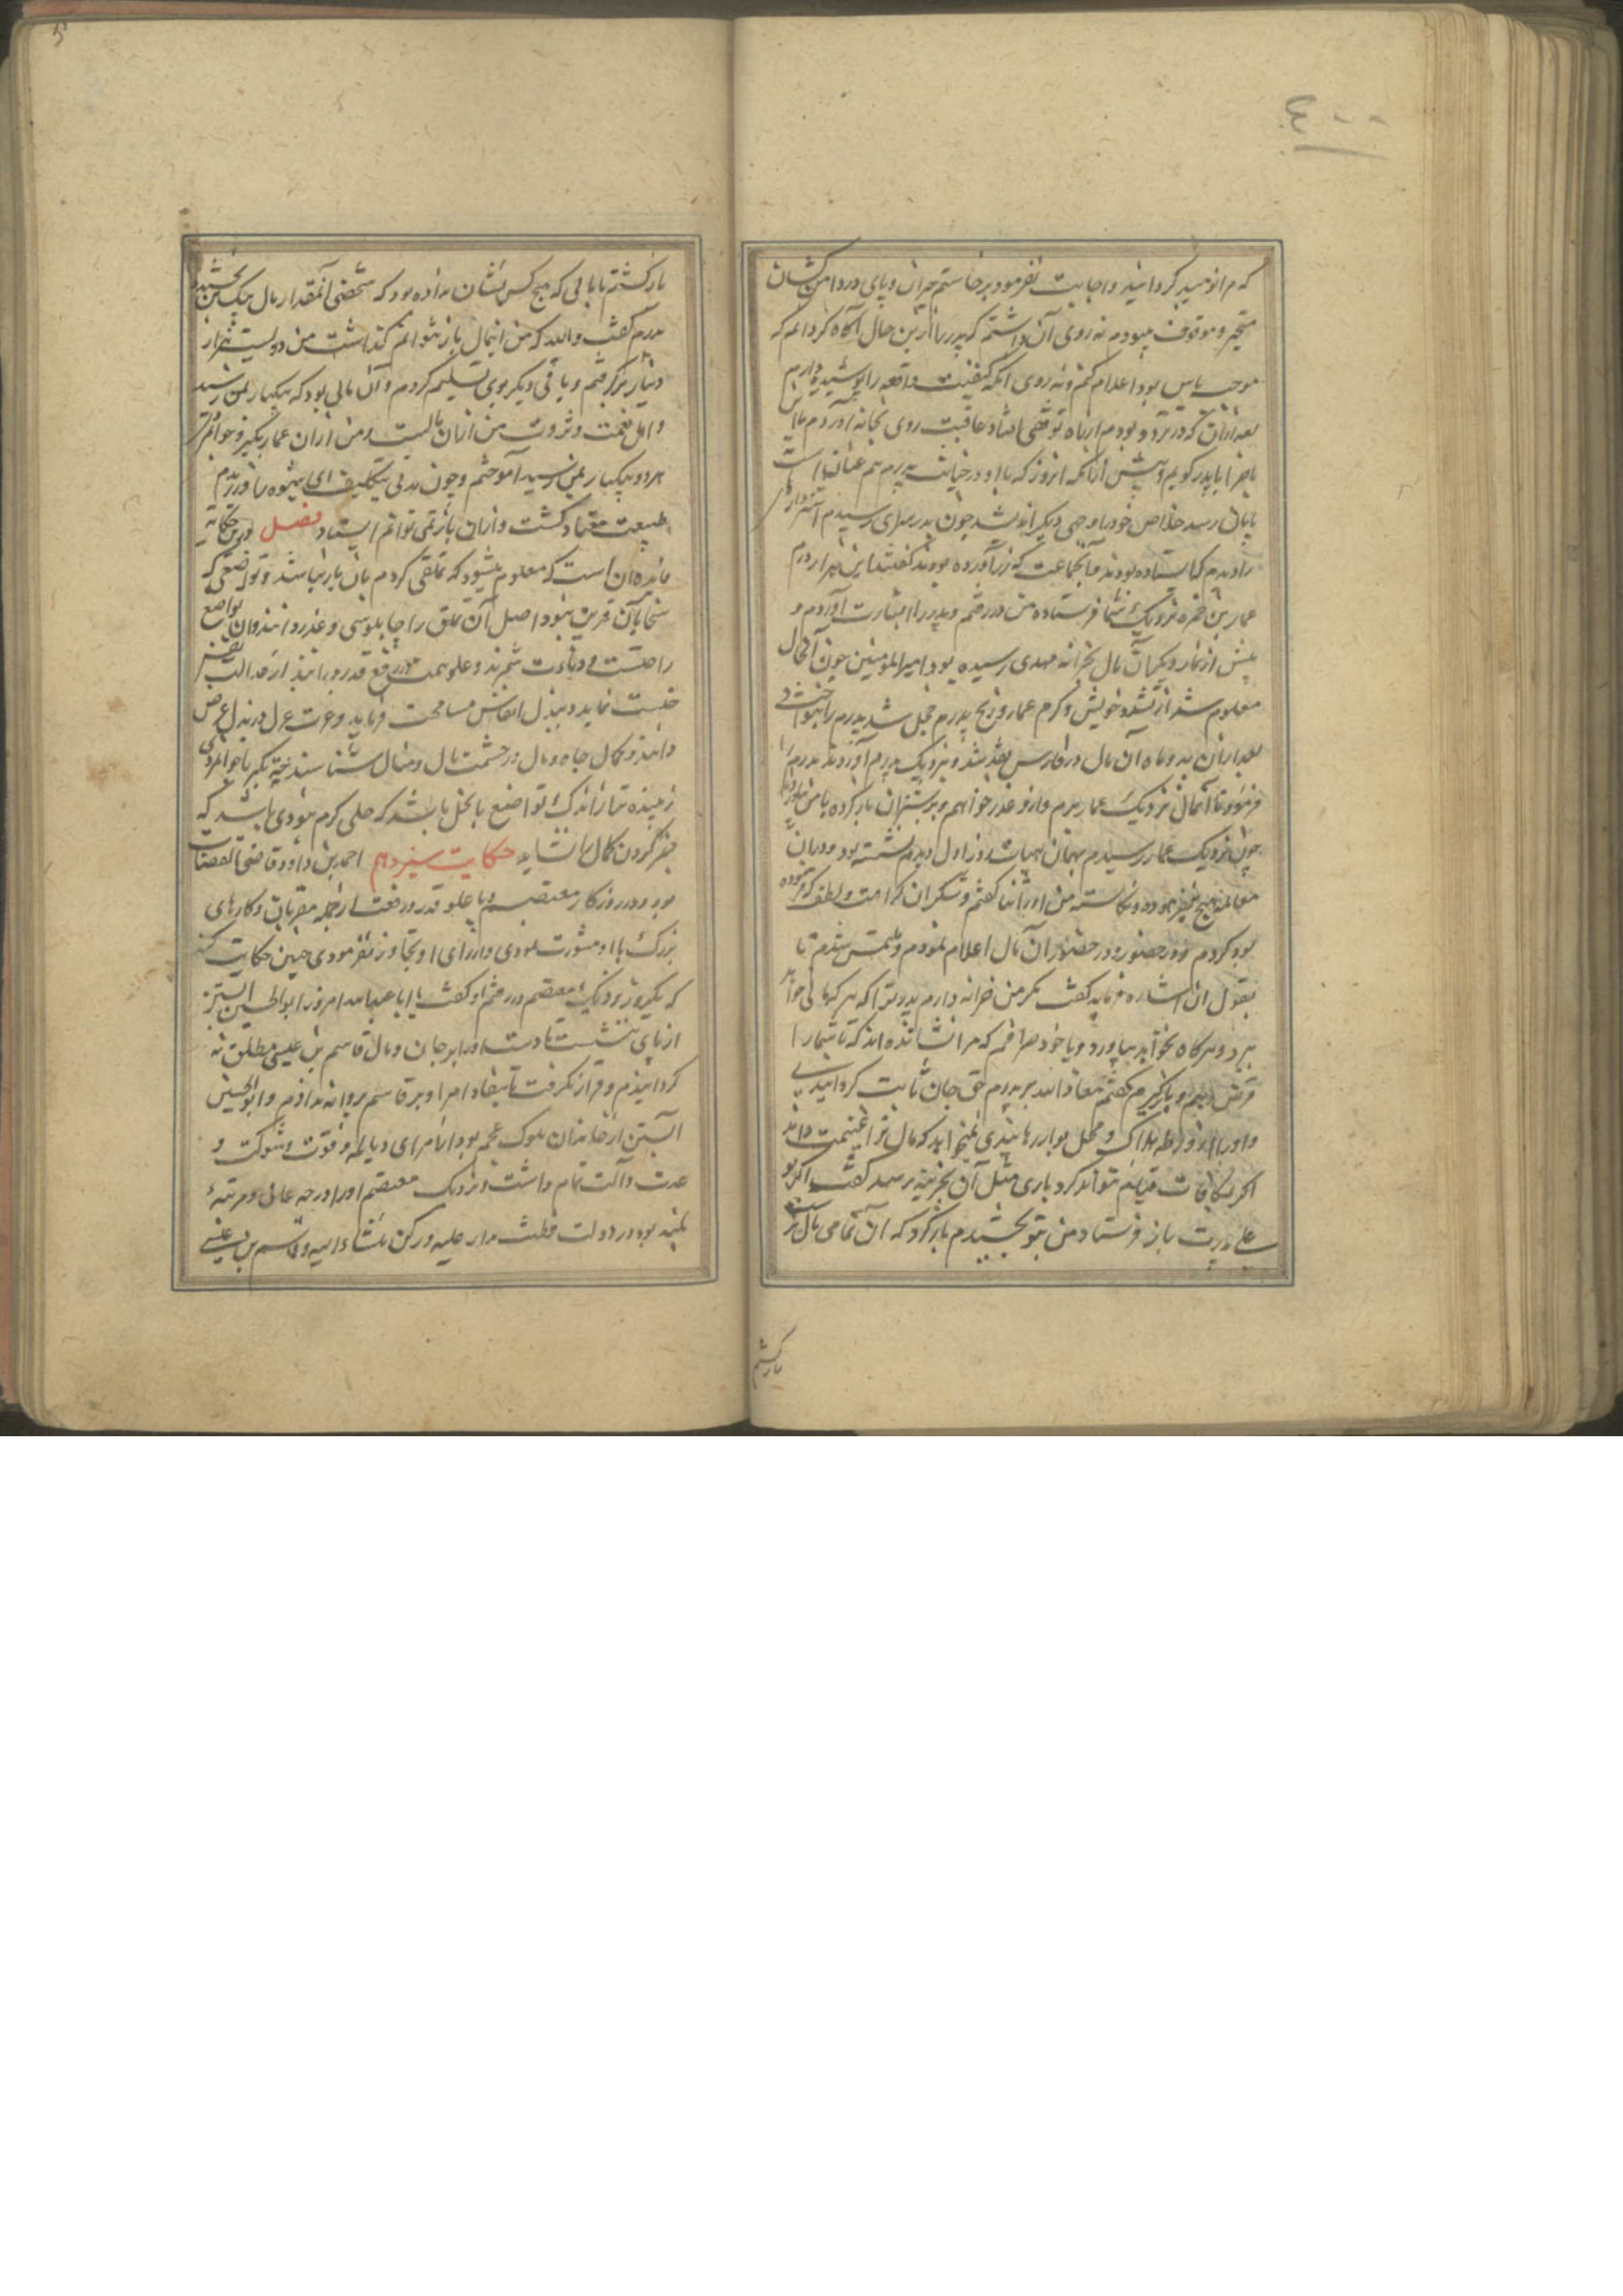 که مرا نومید گردانید و اجابت نفرمود برخاستم حیران و پای در دامن کشان
متحیر و موقوف میبودم نه روی آن داشتم که پدر را ازین حال آگاه گردانم که
موجب یاس بود اعلام کنم و نه روی آنکه کیفیت واقعه را پوشیده دارم
بعد ازان که در تردد بودم و از راه توقفی افتاد عاقبت روی بخانه آوردم تا
ماجرا با پدر گویم و پیش ازانکه امروز که با او در خیانت پدرم هم عنان است
بپایان رسد خلاص خود را وجهی دیگر اندیشد چون بدر سرای رسیدم استرهای
را دیدم که ایستاده بودند با جماعت که زر آورده بودند گفتند این هزار درم
عمار بن حمزه نزدیک شما فرستاده من در رفتم و پدر را بشارت آوردم و
پیش از نماز دیگر آن مال بخزانه مهدی رسیده بود امیرالمومنین چون آن حال
معلوم شد از تشدد خویش و کرم عمار و رنج پدرم خجل شد پدرم را بنواخت و
بعد ازان بدو ماه آن مال در فارس نقد شد و نزدیک پدرم آوردند پدرم مرا
فرمود تا آنمال نزدیک عمار برم و ازو عذر خواهم و بر شتران بار کرده با من
چون نزدیک عمار رسیدم بهمان هیات روز اول دیدم نشسته بود و دران
معامله هیچ نیفزوده و نکاسته من او را ثنا گفتم و شکر آن کرامت و لطف که نموده
بود کردم و در حضور آن مال اعلام نمودم و ملتمس شدم تا
بقبول آن اشاره فرماید گفت مگر من خزانه دارم پدر ترا که هر گه مالی خواهد
ببرد و هر گاه نخواهد بیاورد و یا خود صرافم که مرا نشانده اند که تا شما را
قرض دهم و باز گیرم گفتم معاذ الله بر پدرم حق جان ثابت گردانیدی
و او را از ورطه هلاک و محل بوار رهانیدی نمیخواهد که مال ترا غنیمت داند
اگر مکافات قیام نتواند کرد باری مثل آن بخزینه رسد گفت اگر تو
علی پدرت باز فرستاد من بتو بخشیدم باز گرد که آن تمامی مال تست
بازگشتم
بازگشتم با مالی که هیچ کس نشان نداده بود که شخصی آنمقدار مال بیک کس بخشیده
پدرم گفت والله که من اینمال باز نتوانم گذاشت من دویست هزار
دینار برگرفتم و باقی دیگر بوی تسلیم کردم و آن مالی بود که بیکبار بمن رسید
و اصل نعمت و ثروت من ازان مالست و من ازان عمار تکبر و جوانمردی
هر دو بیکبار بمن رسید آموختم و چون مدتی بتکلیف این شیوه را ورزیدم
طبیعت معتاد گشت و ازان باز نمی توانم ایستاد فصل درین حکایة
فایده آن است که معلوم میشود که تملقی که کرم بان یار نباشد و تواضعی که
سخا بآن قرین نبود اصل آن تملق را چاپلوسی و عذر دانند و آن تواضع
را خست و دناءت شمرند و علو همت و رفع قدر و را نیز از
خست نماید و ببذل انفاس مسامحت فرماید و عزت عزل در بذل عرض
دانند و کمال جاه و مال در حشمت مال و منال شناسند نتیجه تکبر با جوانمردی
زیبنده تر از اندک تواضع با بخل باشد که حلی کرم مودی باشد که
جز گردن کمال را نشاید حکایت سیزدهم احمد بن داود قاضی القضات
بود و در روزگار معتصم و با علو قدر و رفعت از جمله مقربان و کارهای
بزرگ با او مشورت نمودی و از رای او تجاوز نفرمودی چنین حکایت کند
که یکروز نزدیک معتصم در رفتم او گفت یا ابا عبدالله امروز ابوالحسین
از پای ننشست تا دست او را بر جان و مال قاسم بن عیسی مطلق نه
گردانیدم و قرار نگرفت تا بنفاذ امر او بر قاسم پروانه ندادم و ابوالحسین
از خاندان ملوک عجم بود از امرای دیالمه و قوت و شوکت و
عدت و آلت تمام داشت و نزدیک معتصم او را درجه عالی و مرتبهٔ
بلند بود در دولت مدار علیه و رکن و قاسم بن عیسی